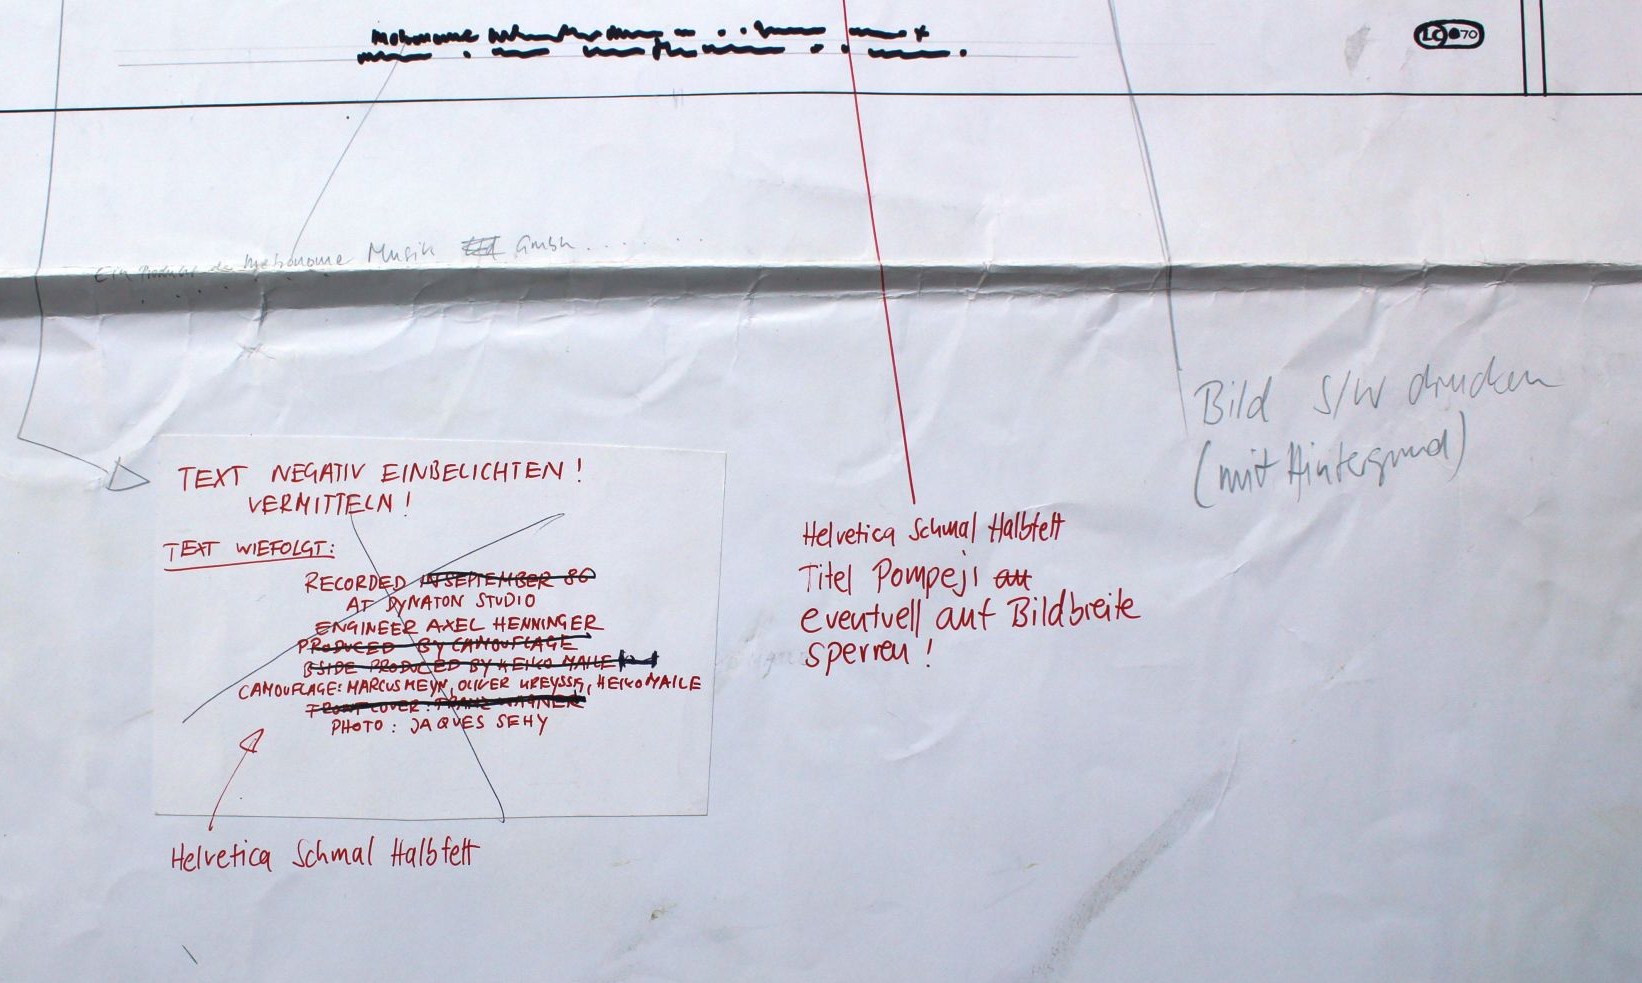 LC 70
Metronome Musik GmbH . . . . . .
Bild S/W drucken
(mit Hintergrund)
TEXT NEGATIV EINBELICHTEN !
VERMITTELN !
TEXT WIEFOLGT:
RECORDED IN SEPTEMBER 86
AT DYNATON STUDIO
ENGINEER AXEL HENNINGER
PRODUCED BY CAMOUFLAGE
B SIDE PRODUCED BY HEIKO MAILE
CAMOUFLAGE: MARCUS MEYN, OLIVER KREYSSIG, HEIKO MAILE
FRONTCOVER: FRANZ WAGNER
PHOTO : JAQUES SEHY
Helvetica Schmal Halbfett
Helvetica Schmal Halbfett
Titel Pompeji auf
eventuell auf Bildbreite
sperren !